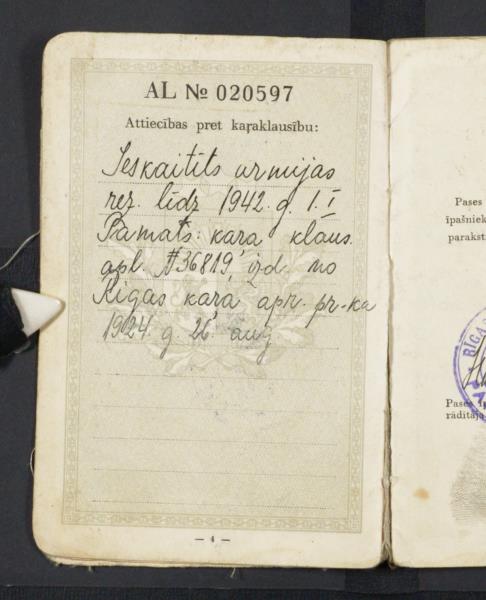 AL № 020597
Attiecības pret kaŗaklausību:
Ieskaitīts armijas
rez. līdz 1942. g. 1. I
Pamats: kara klaus.
apl. #36819, izd. no
Rīgas kara apr. pr-ka
1924. g. 26. aug.
— 4 —
Pases
īpašniek
parakst
RĪGA
Pases
rādītāja